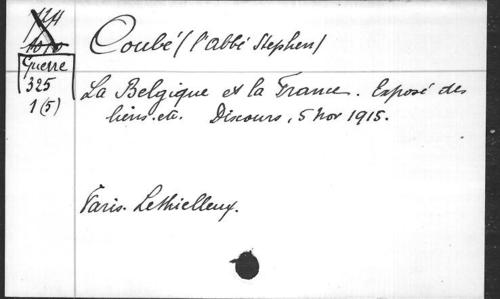 Coubé (l'abbé Stephen)
Guerre
325
1(5)
La Belgique et la France. Exposé des
liens. etc. Discours, 5 Nov 1915.
Paris. Lethielleux.